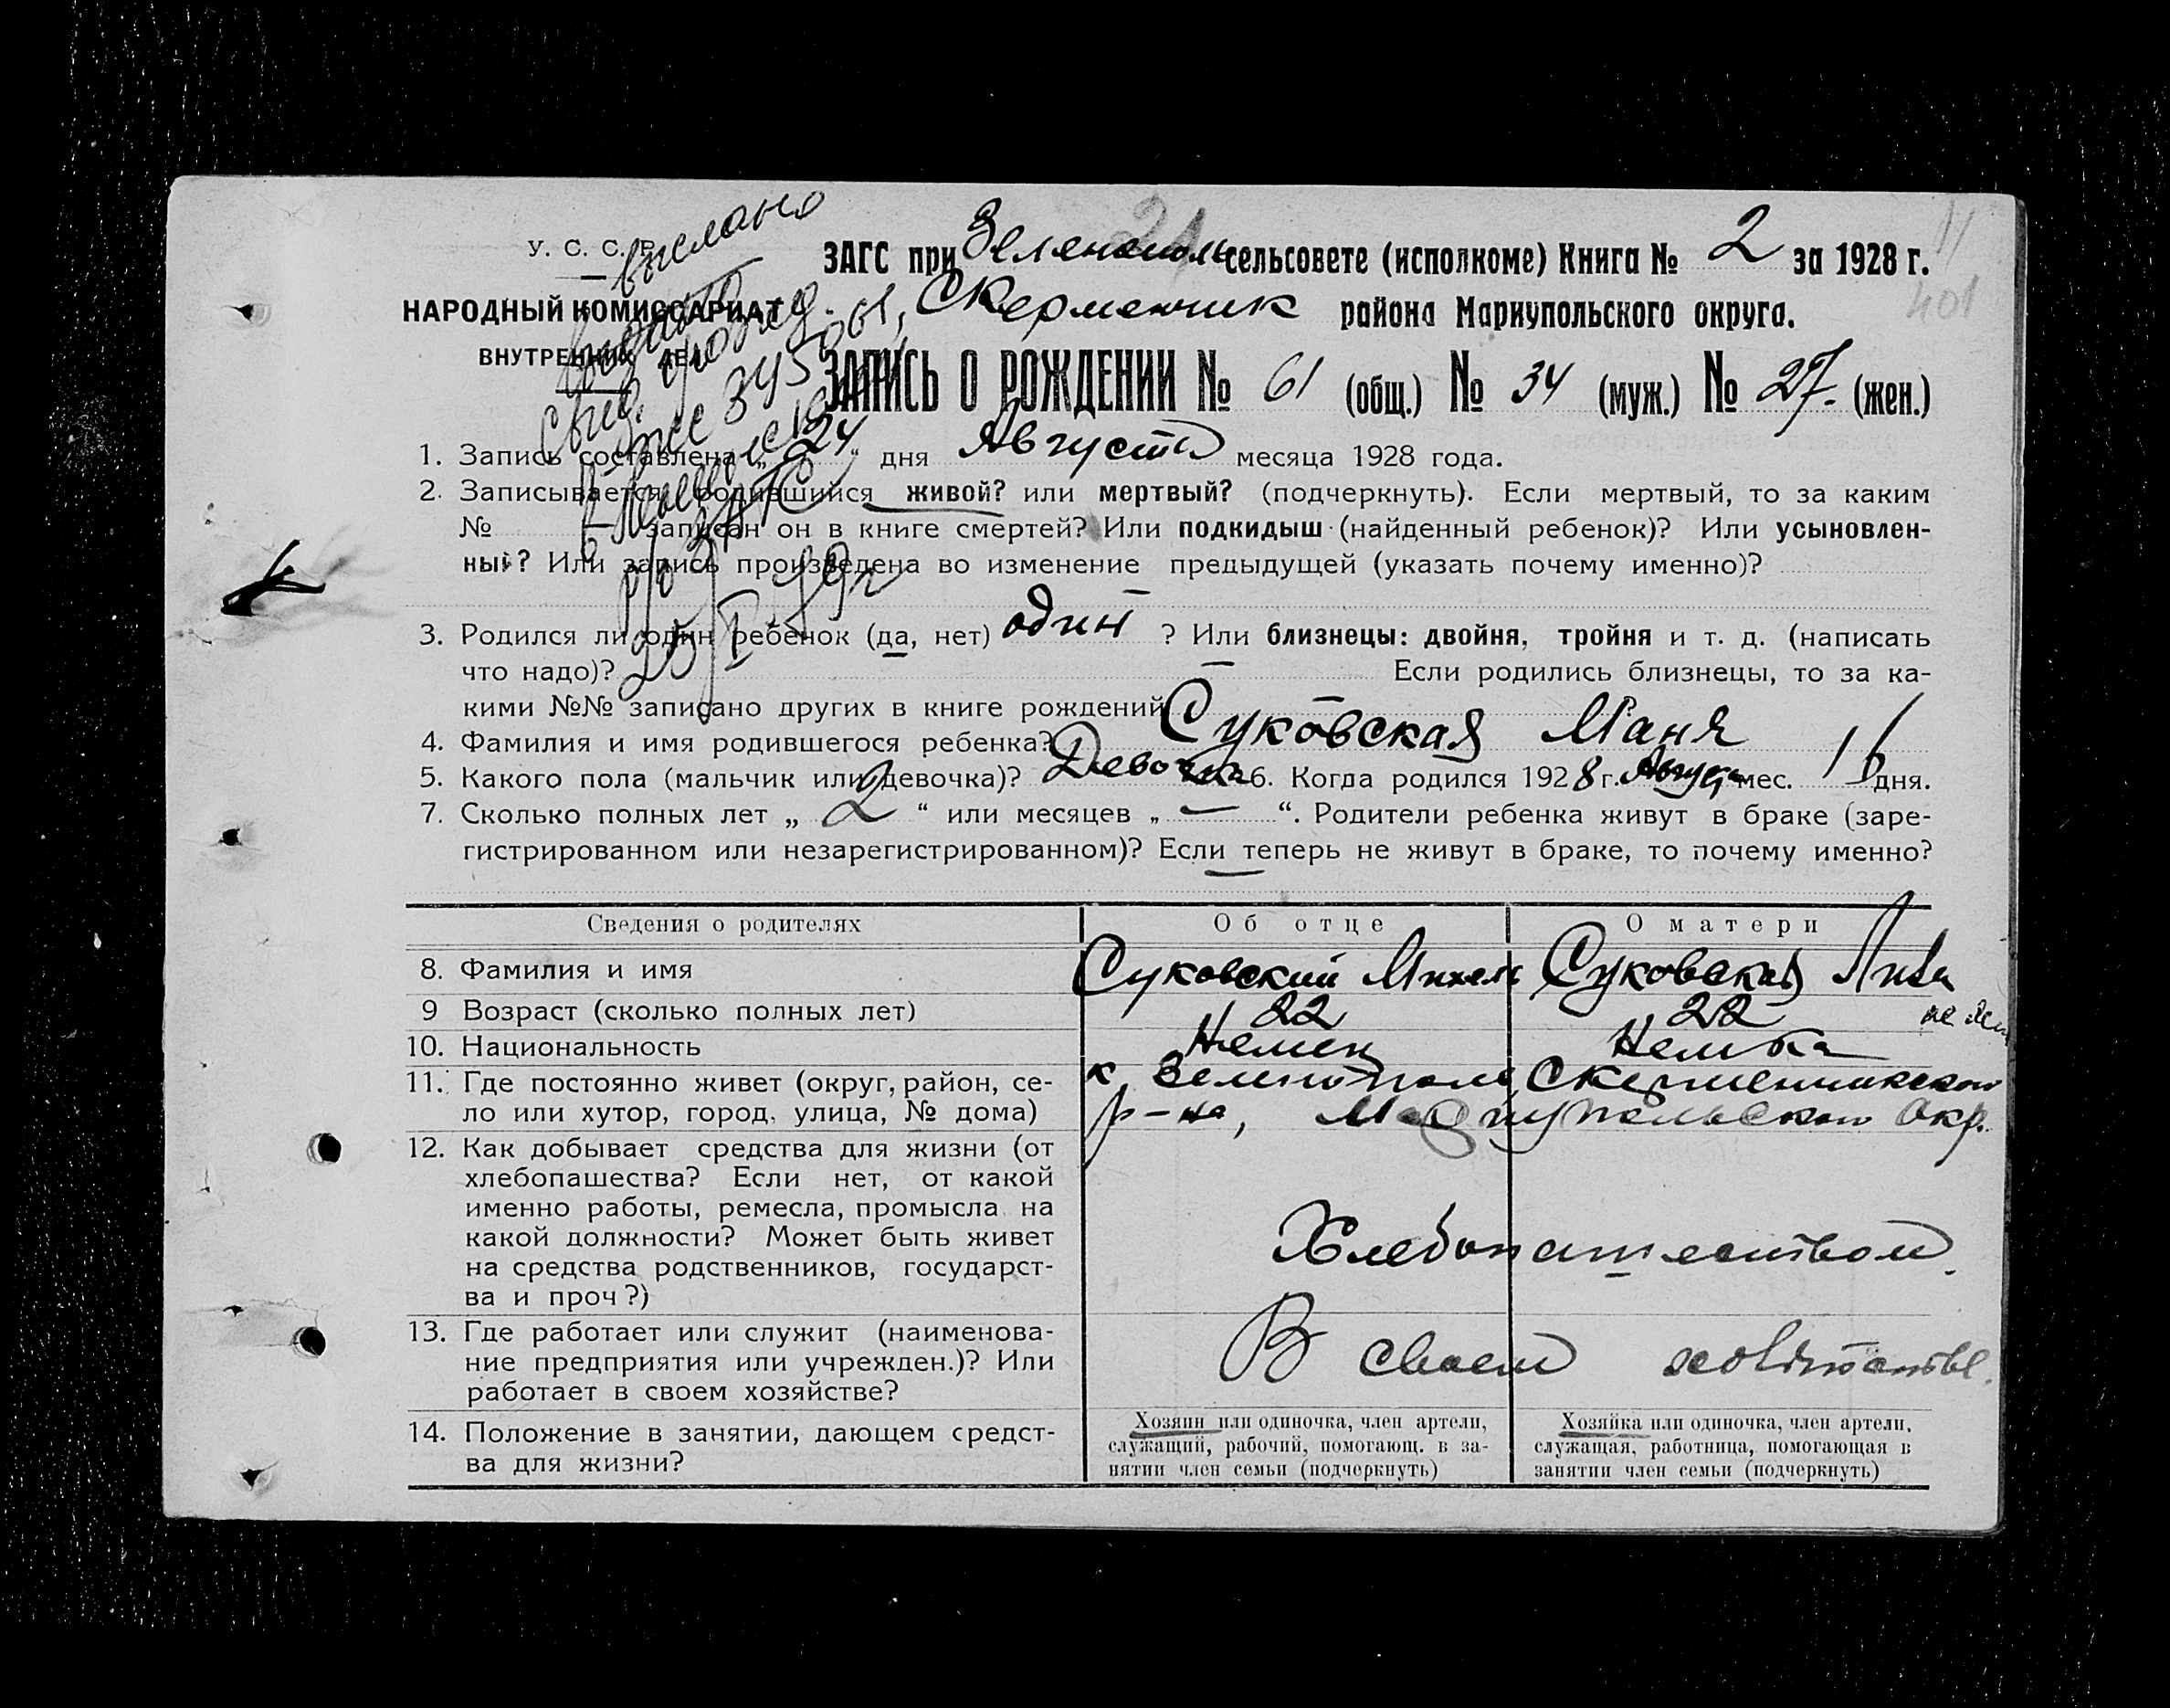 24
У. С. С. Р.
НАРОДНЫЙ КОМИССАРИАТ
ВНУТРЕННИХ ДЕЛ
выслано
ЗАГС при Зеленополь сельсовете (исполкоме) Книга № 2 за 1928 г.
401
Скерменчик района Мариупольского округа.
ЗАПИСЬ О РОЖДЕНИИ № 61 (общ.) № 34 (муж.) № 27. (жен.)
1. Запись составлена „ 24 “ дня Августа месяца 1928 года.
2. Записывается родившийся живой? или мертвый? (подчеркнуть). Если мертвый, то за каким
№ записан он в книге смертей? Или подкидыш (найденный ребенок)? Или усыновлен-
ный? Или запись произведена во изменение предыдущей (указать почему именно)?
3. Родился ли один ребенок (да, нет) один ? Или близнецы: двойня, тройня и т. д. (написать
что надо)? — Если родились близнецы, то за ка-
кими №№ записано других в книге рождений —
4. Фамилия и имя родившегося ребенка? Суковская Маня
5. Какого пола (мальчик или девочка)? Девочка 6. Когда родился 1928 г. Август мес. 16 дня.
7. Сколько полных лет „ 2 “ или месяцев „ — “. Родители ребенка живут в браке (заре-
гистрированном или незарегистрированном)? Если теперь не живут в браке, то почему именно?
—
Сведения о родителях Об отце О матери
8. Фамилия и имя Суковский Михель Суковская Лиза
9 Возраст (сколько полных лет) 22 22
10. Национальность Немец Немка
11. Где постоянно живет (округ, район, се- к. Зеленополь, Скерменчикского
ло или хутор, город, улица, № дома) р-на, Мариупольского окр.
12. Как добывает средства для жизни (от
хлебопашества? Если нет, от какой
именно работы, ремесла, промысла на
какой должности? Может быть живет
на средства родственников, государст-
ва и проч?)
Хлебопашеством.
13. Где работает или служит (наименова-
ние предприятия или учрежден.)? Или
работает в своем хозяйстве?
В своем хозяйстве.
14. Положение в занятии, дающем средст-
ва для жизни?
Хозяин или одиночка, член артели,
служащий, рабочий, помогающ. в за-
нятии член семьи (подчеркнуть)
Хозяйка или одиночка, член артели,
служащая, работница, помогающая в
занятии член семьи (подчеркнуть)